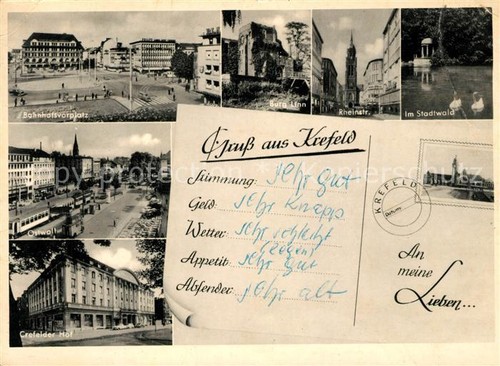 Bahnhofsvorplatz
Burg Linn
Rheinstr.
Im Stadtwald
Ostwall
Crefelder Hof
Gruß aus Krefeld
Stimmung: sehr gut
Geld: sehr knapp
Wetter: sehr schlecht
(Regen)
Appetit: sehr gut
Absender: sehr alt
KREFELD
An
meine
Lieben...